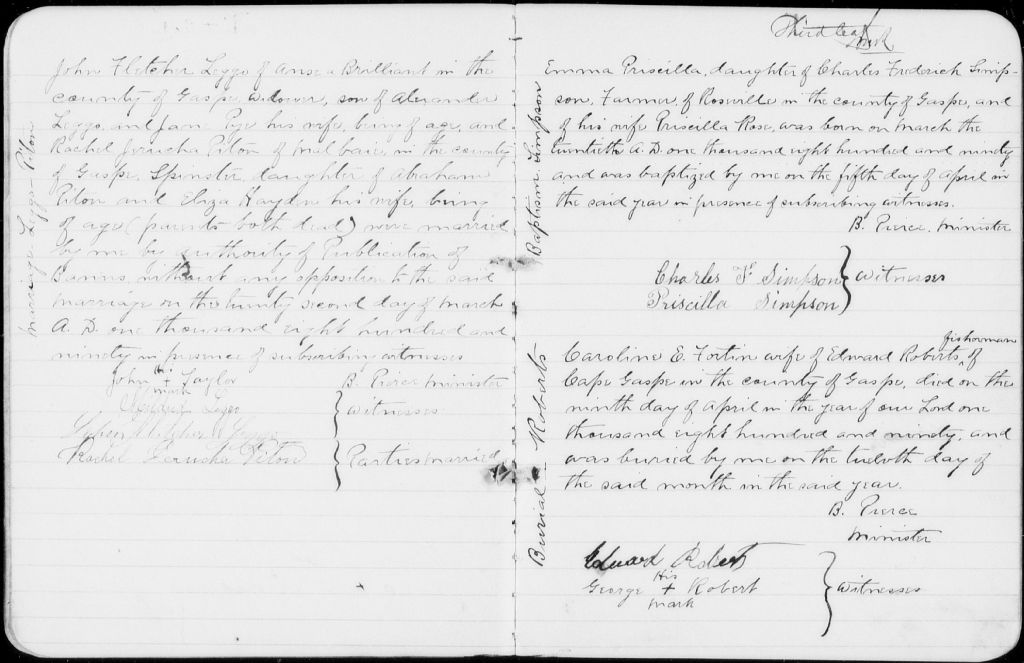 Marriage - Leggo - Piton
John Fletcher Leggo of anse a Brilliant in the
county of Gaspe, widower, son of Alexander
Leggo, and Jane Pye his wife, being of age, and
Rachel Jerusha Piton of Malbaie, in the county
of Gaspe, Spinster, daughter of Abraham
Piton and Eliza Hayden his wife, being
of age (parents both dead) were married
by me by authority of Publication of
Banns, without any opposition to the said
marriage on the twenty second day of March
A. D. one thousand eight hundred and
ninety in presence of subscribing witnesses
B. Pierce minister
his
John + Taylor
mark
Leggo
witnesses
John Fletcher Leggo
Rachel Jerusha Piton
Parties married
Third leaf
Baptism - Simpson
Emma Priscilla, daughter of Charles Frederich Simp-
son, Farmer, of Roseville in the county of Gaspe, and
of his wife Priscilla Rose, was born on March the
twentieth A. D. one thousand eight hundred and ninety
and was baptized by me on the fifth day of April in
the said year in presence of subscribing witnesses.
B. Pierce, minister
Charles F. Simpson
Priscilla Simpson
witnesses
Burial - Roberts
fisherman
Caroline E. Fortin wife of Edward Roberts, of
Cape Gaspe in the county of Gaspe, died on the
ninth day of April in the year of our Lord one
thousand eight hundred and ninety, and
was buried by me on the twelvth day of
the said month in the said year.
B. Pierce
minister
Edward Robert
His
George + Robert
mark
witnesses